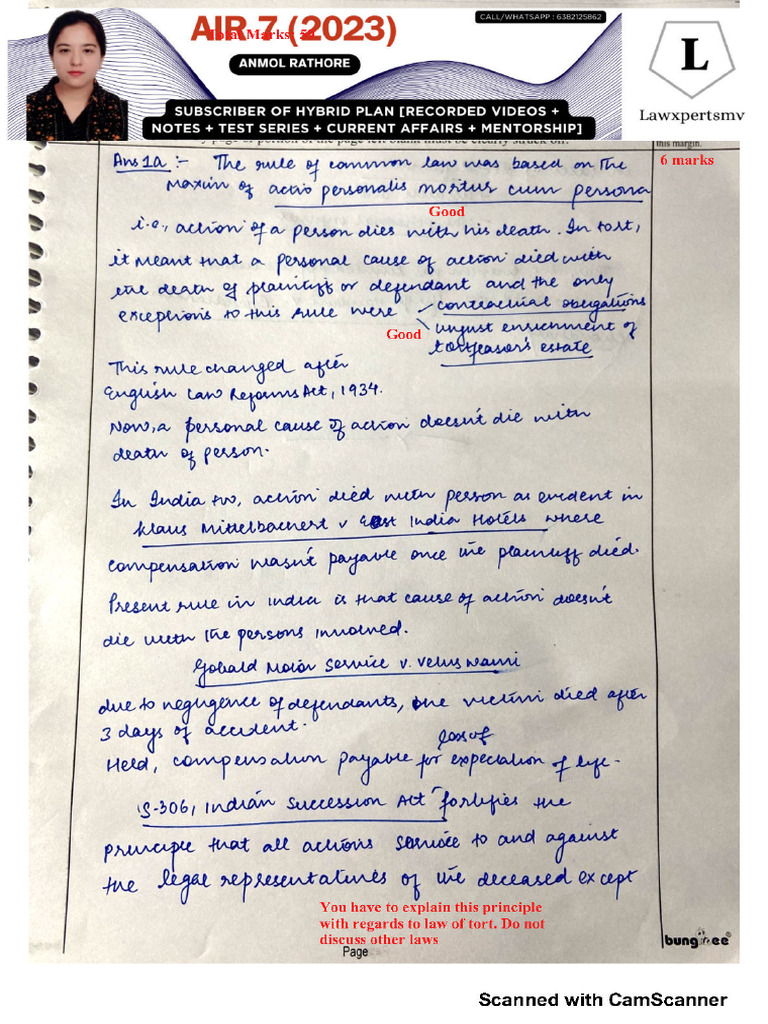 CALL/WHATSAPP : 6382125862
AIR 7 (2023)
Total Marks: 50
ANMOL RATHORE
L
Lawxpertsmv
SUBSCRIBER OF HYBRID PLAN [RECORDED VIDEOS +
NOTES + TEST SERIES + CURRENT AFFAIRS + MENTORSHIP]
this margin.
6 marks
Ans 1a :- The rule of common law was based on the
maxim of actio personalis moritur cum persona
Good
i.e., action of a person dies with his death. In tort,
it meant that a personal cause of action died with
the death of plaintiff or defendant and the only
exceptions to this rule were contractual obligations
Good
unjust enrichment of
tortfeasor's estate
This rule changed after
English Law Reforms Act, 1934.
Now, a personal cause of action doesn't die with
death of person.
In India too, action died with person as evident in
Klaus Mittelbachert v East India Hotels where
compensation wasn't payable once the plaintiff died.
Present rule in India is that cause of action doesn't
die with the persons involved.
Gobald Motor Service v. Veluswami
due to negligence of defendants, the victim died after
3 days of accident.
Held, compensation payable for loss of expectation of life.
S-306, Indian Succession Act fortifies the
principle that all actions survive to and against
the legal representatives of the deceased except
You have to explain this principle
with regards to law of tort. Do not
discuss other laws
Page
bungee
Scanned with CamScanner